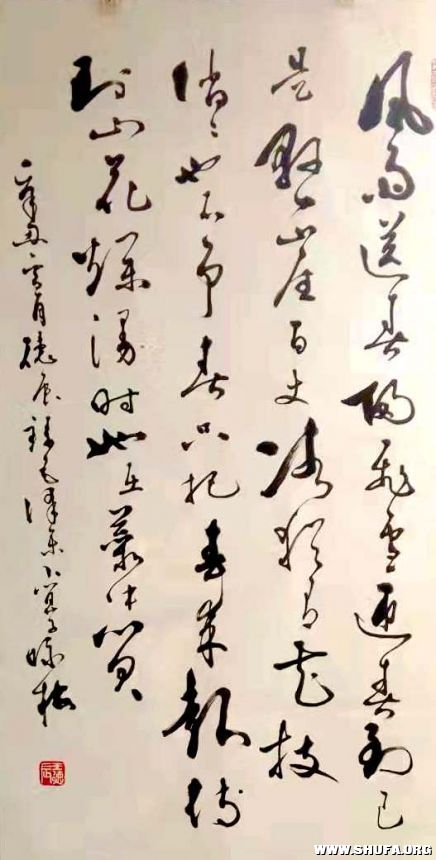 风雨送春归飞雪迎春到已
是悬崖百丈冰犹有花枝
俏俏也不争春只把春来报待
到山花烂漫时她在丛中笑
辛丑 月德辰录毛泽东卜算子咏梅
WWW.SHUFA.ORG